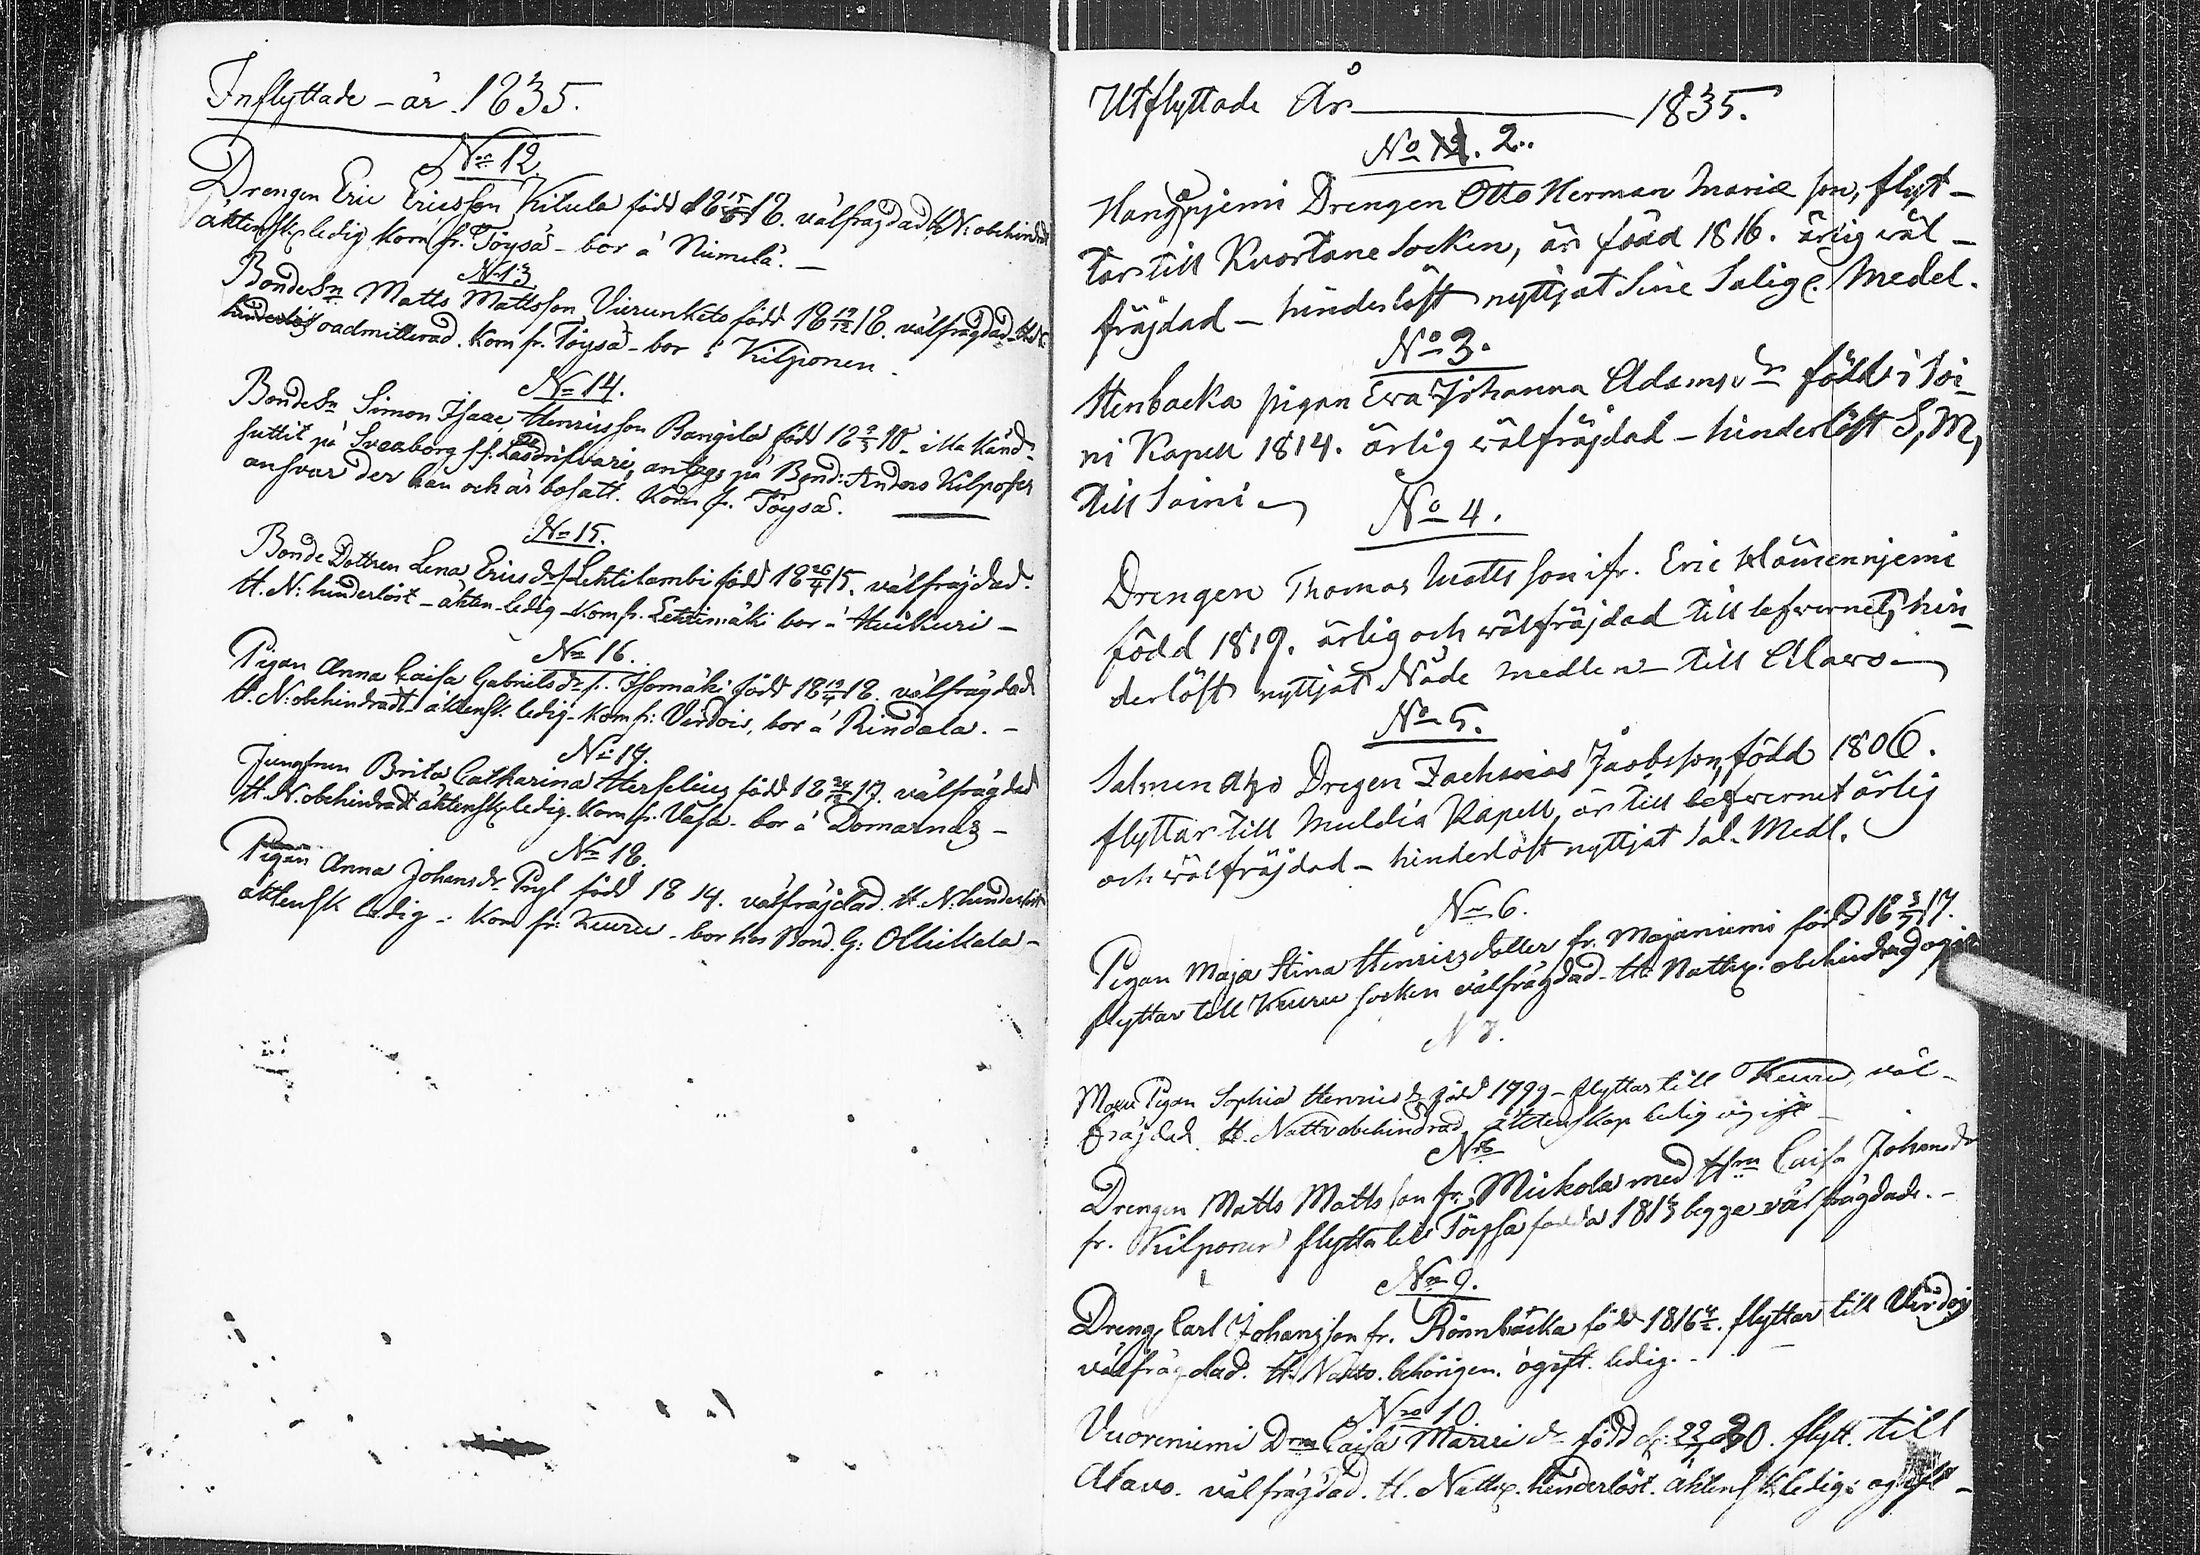 Inflyttade - år 1835.
No 12.
Drengen Eric Ericsson Kitula född 18 15/6 18. välfrägdad H. N: obehindradt
äktensk. ledig kom fr. Töysä - bor å Niemelä. -
N 13
BondeSn Matts Mattsson Vierunketo född 18 19/12 18. välfrägdad H. N.
oadmitterad. Kom fr. Töysä - bor å Kilponen.
No 14.
BondeSn Simon Isaac Henricsson Rangila född 18 2/3 10 - illa känd -
suttit på Sveaborg antogs på Bond: Anders Kilponens
ansvar der han och är bosatt. Kom fr. Töysä.
No 15.
Bonde Dottren Lena Ericsdr Lehtilambi född 18 26/4 15. välfrajdad.
H. N: hinderlöst - äkten. ledig - Kom fr. Lehtimäki bor å Huikuri -
No 16.
Pigan Anna Caisa Gabrielsdr fr. Isomäki född 18 19/4 18. välfrägdad
H. N: obehindradt - äktensk. ledig - Kom fr: Virdois, bor å Rindala. -
No 17.
Jungfrun Brita Catharina Herselius född 18 24/12 17. välfrägdad
H. N. obehindradt äktensk. ledig. Kom fr. Vasa - bor å Domarnäs -
No 18.
Pigan Anna Johansdr född 1814. välfräjdad. H. N. hinderlöst
äktensk ledig - Kom fr: Keuru - bor hos Bond. G: Ollikala -
Utflyttade År 1835.
No 2.
Drengen Otto Herman Mariæ son, flyt-
tar till Kuortane Socken, är född 1816. ärlig wäl-
fräjdad - hinderlöst nyttjat Sine Salige. Medel.
No 3.
Stenbacka pigan Eva Johanna Adamsdr född i Soi-
ni Kapell 1814. ärlig wälfräjdad - hinderlöst S. M,
till Soini -
No 4.
Drengen Thomas Mattsson ifr. Eric Hämenniemi
född 1819. ärlig och wälfräjdad till lefwernet, hin-
derlöst nyttjat Nåde medlen - till Alawo -
No 5.
Salmen aho Dregen Zachrias Jacobsson, född 1806.
flyttar till Muldia Kapell, är till lefwernet ärlig
och wälfräjdad - hinderlöst nyttjat Sal. Medl.
No 6.
Pigan Maja Stina Henricsdotter fr. Majaniemi född 18 3/7 17.
flyttar till Keuru socken välfrägdad - H. Nattv. obehindrad ogift
N 7.
Pigan Sophia Henricsdr född 1799 - flyttar till Keuru, väl-
fräjdad. H. Nattv obehindrad, äktenskap ledig ogift -
No 8
Drengen Matts Mattsson fr. Mickola med Hru Caisa Johansdr
fr. Kilponen flytta till Töysä födda 1813 begge välfrägdade. -
No 9.
Dreng Carl Johansson fr. Rönnbacka född 1816. flyttar till Virdois
välfrägdad. H. Nattv. behörigen. ogift. ledig. -
No 10
Vuoreniemi Caisa född d: flytt. till
Alavo. välfrägdad. H. Nattv. hinderlöst. äktensk ledig: ogift -